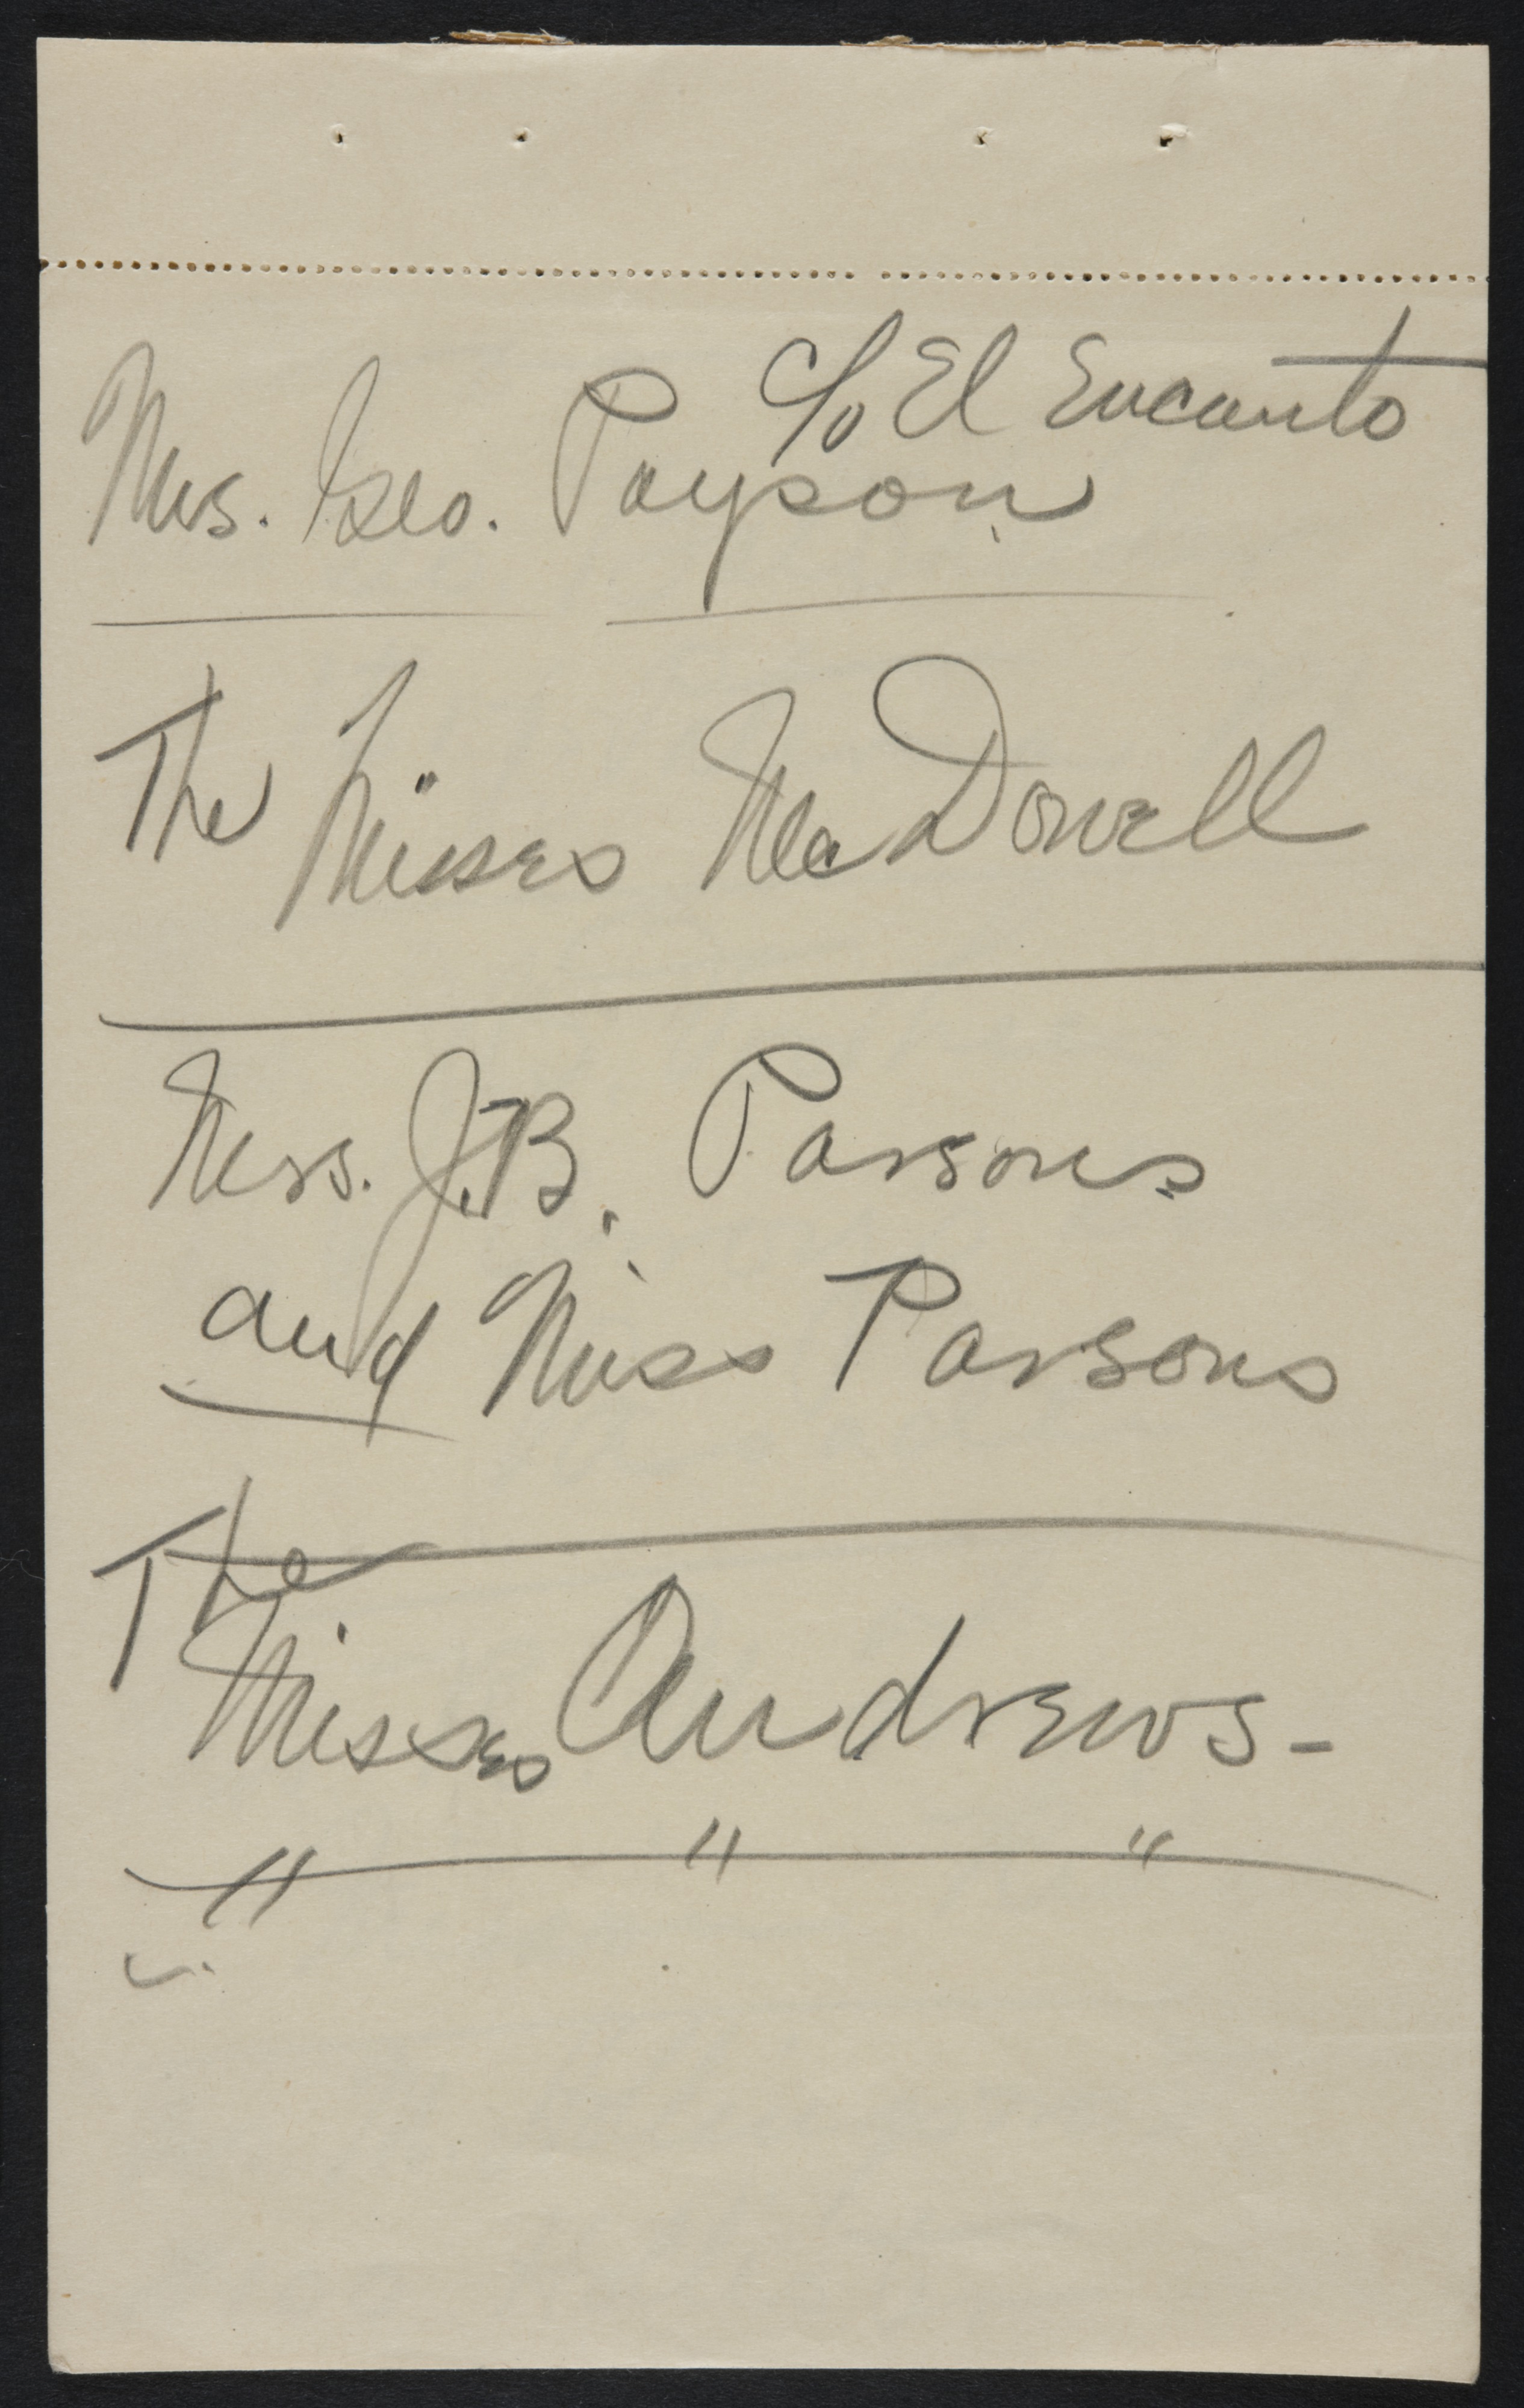 c/o El Encanto
Mrs. Geo. Payson
The Misses MacDowell
Mrs. J.B. Parsons
and Miss Parsons
The
Misses Andrews -
" " "